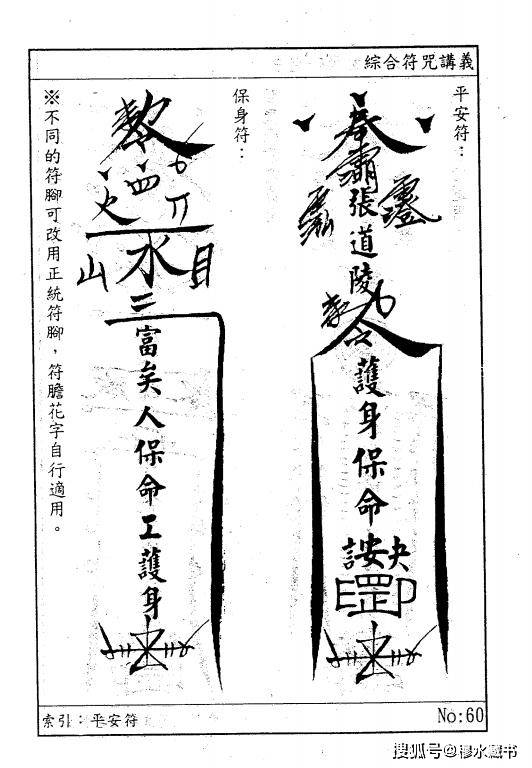 綜合符咒講義
平安符：
奉
張道陵
護身保命
保身符：
敕
四
火
水
山
目
二
富矣人保命工護身
※不同的符腳可改用正統符腳，符膽花字自行適用。
索引：平安符
No:60
搜狐号@穆水藏书